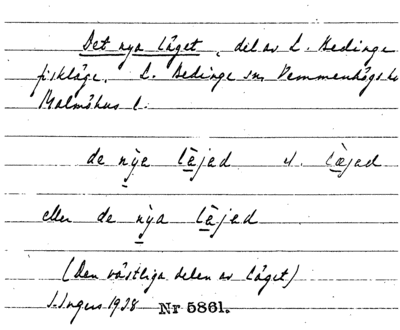 Det nya läget, del av L. Bedinge
fiskläge. L. Bedinge sn Vemmenhögs h
Malmöhus l.
de nỳe lèjed el. læ̀jed
eller de nỳa lèjed
(Den västliga delen av läget)
I. Ingers 1938 Nr 5861.